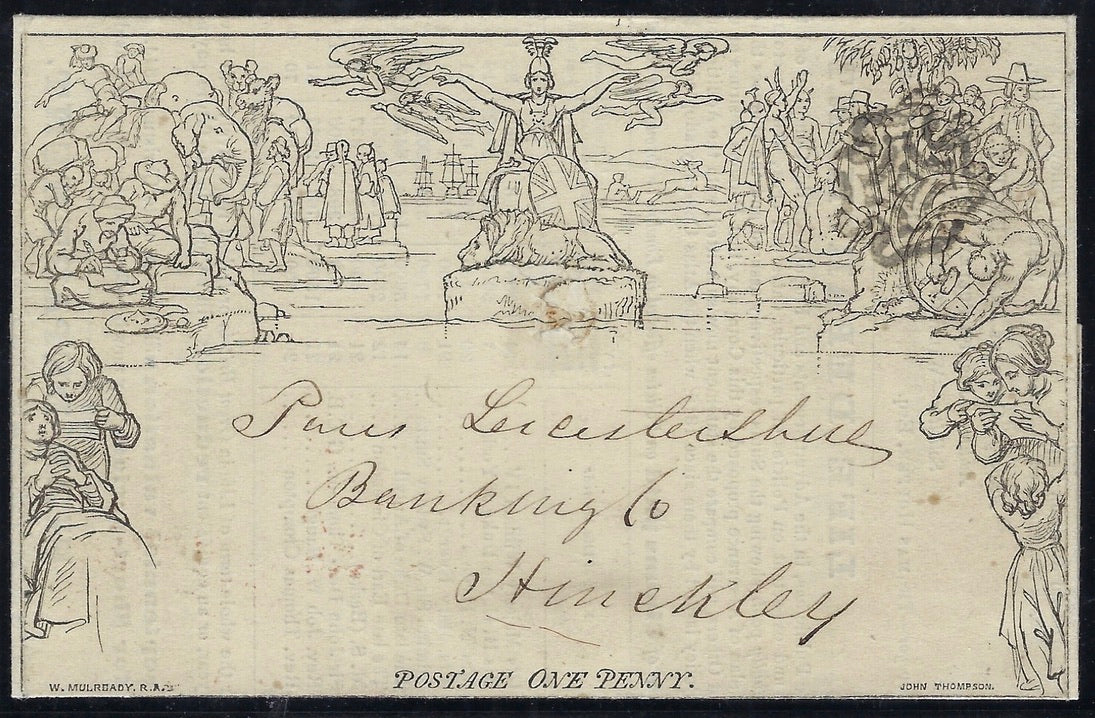 Leicestershire
Banking Co
Hinckley
POSTAGE ONE PENNY.
W. MULREADY. R.A.
JOHN THOMPSON.